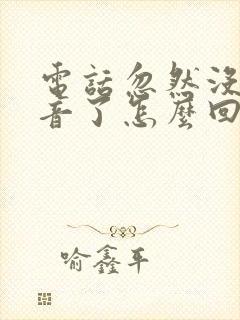 電話忽然沒
音了怎麼回
喻鑫平